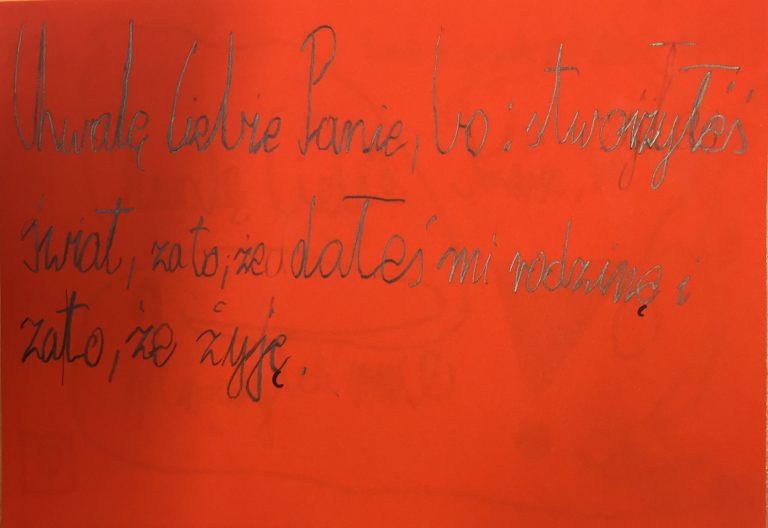 Chwalę Ciebie Panie, bo: stworzyłeś
świat, zato, że dałeś mi rodzinę i
zato, że żyję.